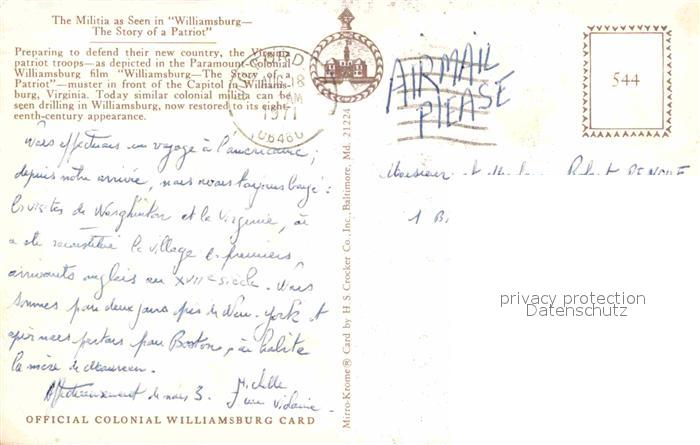 The Militia as Seen in "Williamsburg—
The Story of a Patriot"
Preparing to defend their new country, the Virginia
patriot troops—as depicted in the Paramount-Colonial
Williamsburg film "Williamsburg—The Story of a
Patriot"—muster in front of the Capitol in Williams-
burg, Virginia. Today similar colonial militia can be
seen drilling in Williamsburg, now restored to its eight-
eenth-century appearance.
18
1971
06460
AIRMAIL
PLEASE
544
Nous effectuons un voyage à l'américaine ;
depuis notre arrivée, nous avons toujours bougé :
visites de Washington et la Virginie, où
a été reconstitué le village des premiers
arrivants anglais au XVIIe siècle. Nous
sommes pour deux jours près de New-York et
après nous partons pour Boston, où habite
la mère de
Affectueusement de nous 3. Michelle
Monsieur et Robert
1 B
OFFICIAL COLONIAL WILLIAMSBURG CARD
Mirro-Krome ® Card by H S Crocker Co., Inc., Baltimore, Md. 21224
privacy protection
Datenschutz